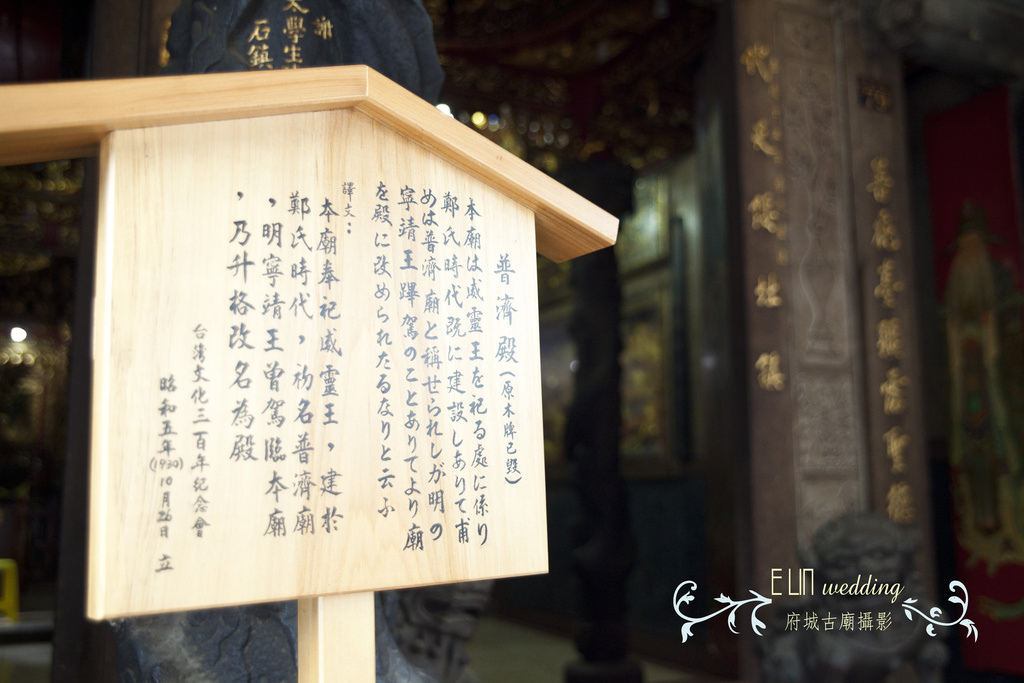 普濟殿(原木牌已毀)
本廟は威靈王を祀る處に係り
鄭氏時代既に建設しありて甫
めは普濟廟と稱せられしが明の
寧靖王蹕駕のことありてより廟
を殿に改められたるなりと云ふ
譯文：
本廟奉祀威靈王，建於
鄭氏時代，初名普濟廟
，明寧靖王曾駕臨本廟
，乃升格改名為殿
台灣文化三百年紀念會
昭和五年(1930)10月26日 立
謝
大學生
石鎮
E LIN wedding
府城古廟攝影